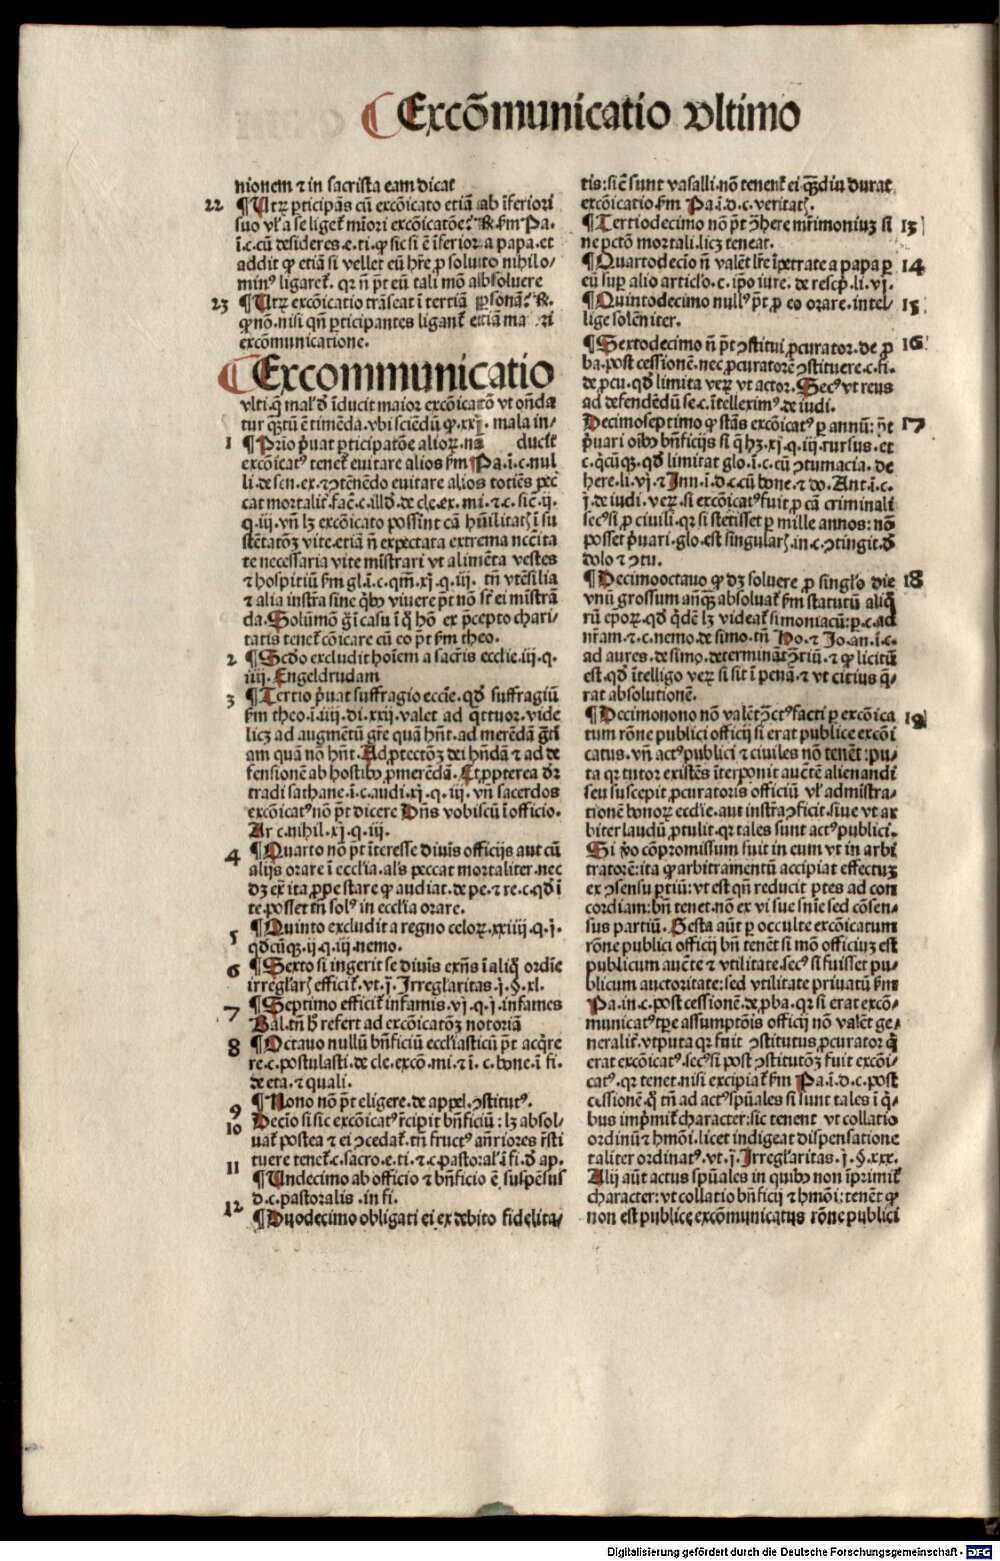 Excōmunicatio vltimo
nionem ⁊ in sacrista eam dicat
22 ¶ Utrꝝ ꝑticipās cū excōicato etiā ab īferiori
suo vl̓ a se ligeť mīori excōicatōe: ℟. ẜm Pa.
ī.c.cū desideres.e.ti.ꝙ sic si ē īferior a papa.et
addit ꝙ etiā si vellet eū hr̄e ꝓ soluto nihilo/
minꝰ ligareť. qr̄ n̄ pt̄ eū tali mō absoluere
23 ¶ Utrꝝ excōicatio trāseat ī tertiā ꝑsonā: ℟.
ꝙ nō.nisi qn̄ ꝑticipantes liganť etiā ma ri
excōmunicatione.
Excommunicatio
vlti.q̄ mal̓ ď īducit maior excōicatō vt on̄da
tur quātū ē timēda.vbi sciēdū ꝙ.xxj. mala in/
1 ¶ Prīo p̄uat ꝑticipatōe alioꝝ.nā ducť
excōicatꝰ teneť euitare alios ẜm Pa.ī.c.nul
li.de sen.ex.⁊ ↄtēnēdo euitare alios totiēs pec
cat mortaliť.fac̄.c.illď.de cle.ex.mi.⁊.c.sicē.ij.
q.iij.vn̄ lꝫ excōicato possint cā hūilitaꝭ ī su
stētatōꝫ vite.etiā n̄ expectata extrema ncc̄ita
te necessaria vite mīstrari vt alimēta vestes
⁊ hospitiū ẜm gl.ī.c.qm̄.xj.q.iij. tn̄ vtēsilia
⁊ alia instr̄a sine qbꝰ viuere pt̄ nō sť ei mīstrā
da.Solūmō gn̄i casu ī q̄ hō ex p̄cepto chari/
tatis teneť cōicare cū eo pt̄ ẜm theo.
2 ¶ Scd̓o excludit hoīem a sacr̄is ecclie.iij.q.
iiij.Engeldrudam
3 ¶ Tertio p̄uat suffragio eccīe.qď suffragiū
ẜm theo.ī.iiij.di.xxij.valet ad qttuor.vide
licꝫ ad augmētū gr̄e quā hn̄t.ad merēdā gr̄i
am quā nō hn̄t.Ad ꝓtectōꝫ dei hn̄dā ⁊ ad de
fensionē ab hostibꝰ ꝓmerēdā.Et ꝓpterea dr̄
tradi sathane.ī.c.audi.xj.q.iij. vn̄ sacerdos
excōicatꝰ nō pt̄ dicere Dn̄s vobiscū ī officio.
Ar c.nihil.xj.q.iij.
4 ¶ Quarto nō pt̄ īteresse diuīs officijs aut cū
alijs orare ī eccl̓ia.al̓s peccat mortaliter.nec
dꝫ ex̄ ita ꝓpe stare ꝙ audiat.de pe.⁊ re.c.qď ī
te.posset tn̄ solꝰ in eccl̓ia orare.
5 ¶ Quinto excludit a regno celoꝝ.xxiiij.q.j.
qďcūqꝫ.ij.q.iij.nemo.
6 ¶ Sexto si ingerit se diuīs exn̄s ī aliq̄ ordīe
irregl̓aꝭ efficiť.vt.j.Irregl̓aritas.j.§.xl.
7 ¶ Septimo efficiť infamis.vj.q.j.infames
Bal.tn̄ h̄ refert ad excōicatōꝫ notoriā
8 ¶ Octauo nullū bn̄ficiū eccl̓iasticū pt̄ acq̄re
re.c.postulasti.de cle.excō.mi.⁊ ī.c.bone.ī fi.
de eta.⁊ quali.
9 ¶ Nono nō pt̄ eligere.de appel.ↄstitutꝰ.
10 Decīo si sic excōicatꝰ r̄cipit bn̄ficiū: lꝫ absol/
uať postea ⁊ ei ↄcedať.tn̄ fructꝰ an̄riores r̄sti
tuere teneť.c.sacro.e.ti.⁊.c.pastoral̓.ī fi.ď ap.
11 ¶ Undecimo ab officio ⁊ bn̄ficio ē suspēsus
d.c.pastoralis.in fi.
12 ¶ Duodecimo obligati ei ex debito fidelita/
tis:sič sunt vasalli.nō tenenť ei quādiu durat
excōicatio ẜm Pa.ī.d.c.veritaꝭ.
¶ Tertiodecimo nō pt̄ ↄ̄here mr̄imoniuꝫ si 13
ne pctō mortali.licꝫ teneat.
¶ Quartodecīo n̄ valēt lr̄e īpetrate a papa ꝑ 14
eū suꝑ alio articl̓o.c.ip̄o iure. de rescp̄.li.vj.
¶ Quintodecimo nullꝰ pt̄ ꝓ eo orare.intel/ 15
lige solēniter.
¶ Sextodecimo n̄ pt̄ ↄstitui ꝓcurator.de ꝓ 16
ba.post cessionē.nec ꝓcuratorē ↄstituere.c.fi.
de ꝓcu.qď limita verꝝ vt actor.Secꝰ vt reus
ad defendēdū se.c.ītelleximꝰ.de iudi.
Decimoseptimo ꝙ stās excōicatꝰ ꝑ annū: pt̄ 17
p̄uari oībꝰ bn̄ficijs si q̄ hꝫ.xj.q.iij.rursus.et
c.q̄cūqꝫ.qď limitat glo.ī.c.cū ↄtumacia. de
here.li.vj.⁊ Inn.ī.d.c.cū bone.⁊ do.Ant.ī.c.
j.de iudi.verꝝ.si excōicatꝰ fuit ꝓ cā criminali
secꝰ si ꝓ ciuili.qr si stetisset ꝑ mille annos: nō
posset p̄uari.glo.est singularꝭ.in.c.ↄtingit.ď
dolo ⁊ ↄtu.
¶ Decimooctauo ꝙ dꝫ soluere ꝓ singl̓o die 18
vnū grossum an̄qꝫ absoluať ẜm statutū aliq̄
rū epoꝝ.qď q̄dē lꝫ videať simoniacū:ꝑ.c.ad
nr̄am.⁊.c.nemo.de simo.tn̄ Ho.⁊ Jo.an.ī.c.
ad aures.de simo.determināt ↄ̄riū.⁊ ꝙ licitū
est.qď ītelligo verꝝ si sit ī penā.⁊ vt citius q̄/
rat absolutionē.
¶ Decimonono nō valēt ↄ̄ctꝰ facti ꝑ excōica 19
tum rōne publici officij si erat publice excōi
catus.vn̄ actꝰ publici ⁊ ciuiles nō tenēt: pu/
ta qr tutor existēs īterponit auc̄tē alienandi
seu suscepit ꝓcuratoris officiū vl̓ admīstra/
tionē bonoꝝ ecclīe.aut instr̄a ↄficit.siue vt ar
biter laudū ꝓtulit.qr tales sunt actꝰ publici.
Si ꝟo cōpromissum fuit in eum vt in arbi
tratorē:ita ꝙ arbitramentū accipiat effectuꝫ
ex ↄsensu ꝑtiū:vt est qn̄ reducit ꝑtes ad con
cordiam:bn̄ tenet.nō ex vi sue snīe sed cōsen/
sus partiū.Gesta aūt ꝑ occulte excōicatum
rōne publici officij bn̄ tenēt si mō officiuꝫ est
publicum auc̄te ⁊ vtilitate.secꝰ si fuisset pu/
blicum auctoritate:sed vtilitate priuatū ẜm
Pa.in.c.post cessionē.de ꝓba.qr si erat excō/
municatꝰ tꝑe assumptōis officij nō valēt ge/
neraliť.vtputa qr fuit ↄstitutus ꝓcurator q̄
erat excōicatꝰ.secꝰ si post ↄstitutōꝫ fuit excōi/
catꝰ.qr tenet.nisi excipiať ẜm Pa.ī.d.c.post
cessionē.Q̄ tn̄ ad actꝰ spūales si sunt tales ī q̄/
bus imp̄miť character:sic tenent vt collatio
ordinū ⁊ hmōi.licet indigeat dispensatione
taliter ordinatꝰ.vt.j.Irregl̓aritas.j.§.xxx.
Alij aūt actus spūales in quibꝰ non īprimiť
character:vt collatio bn̄ficij ⁊ hmōi:tenēt ꝙ
non est publice excōmunicatus rōne publici
Digitalisierung gefördert durch die Deutsche Forschungsgemeinschaft - DFG